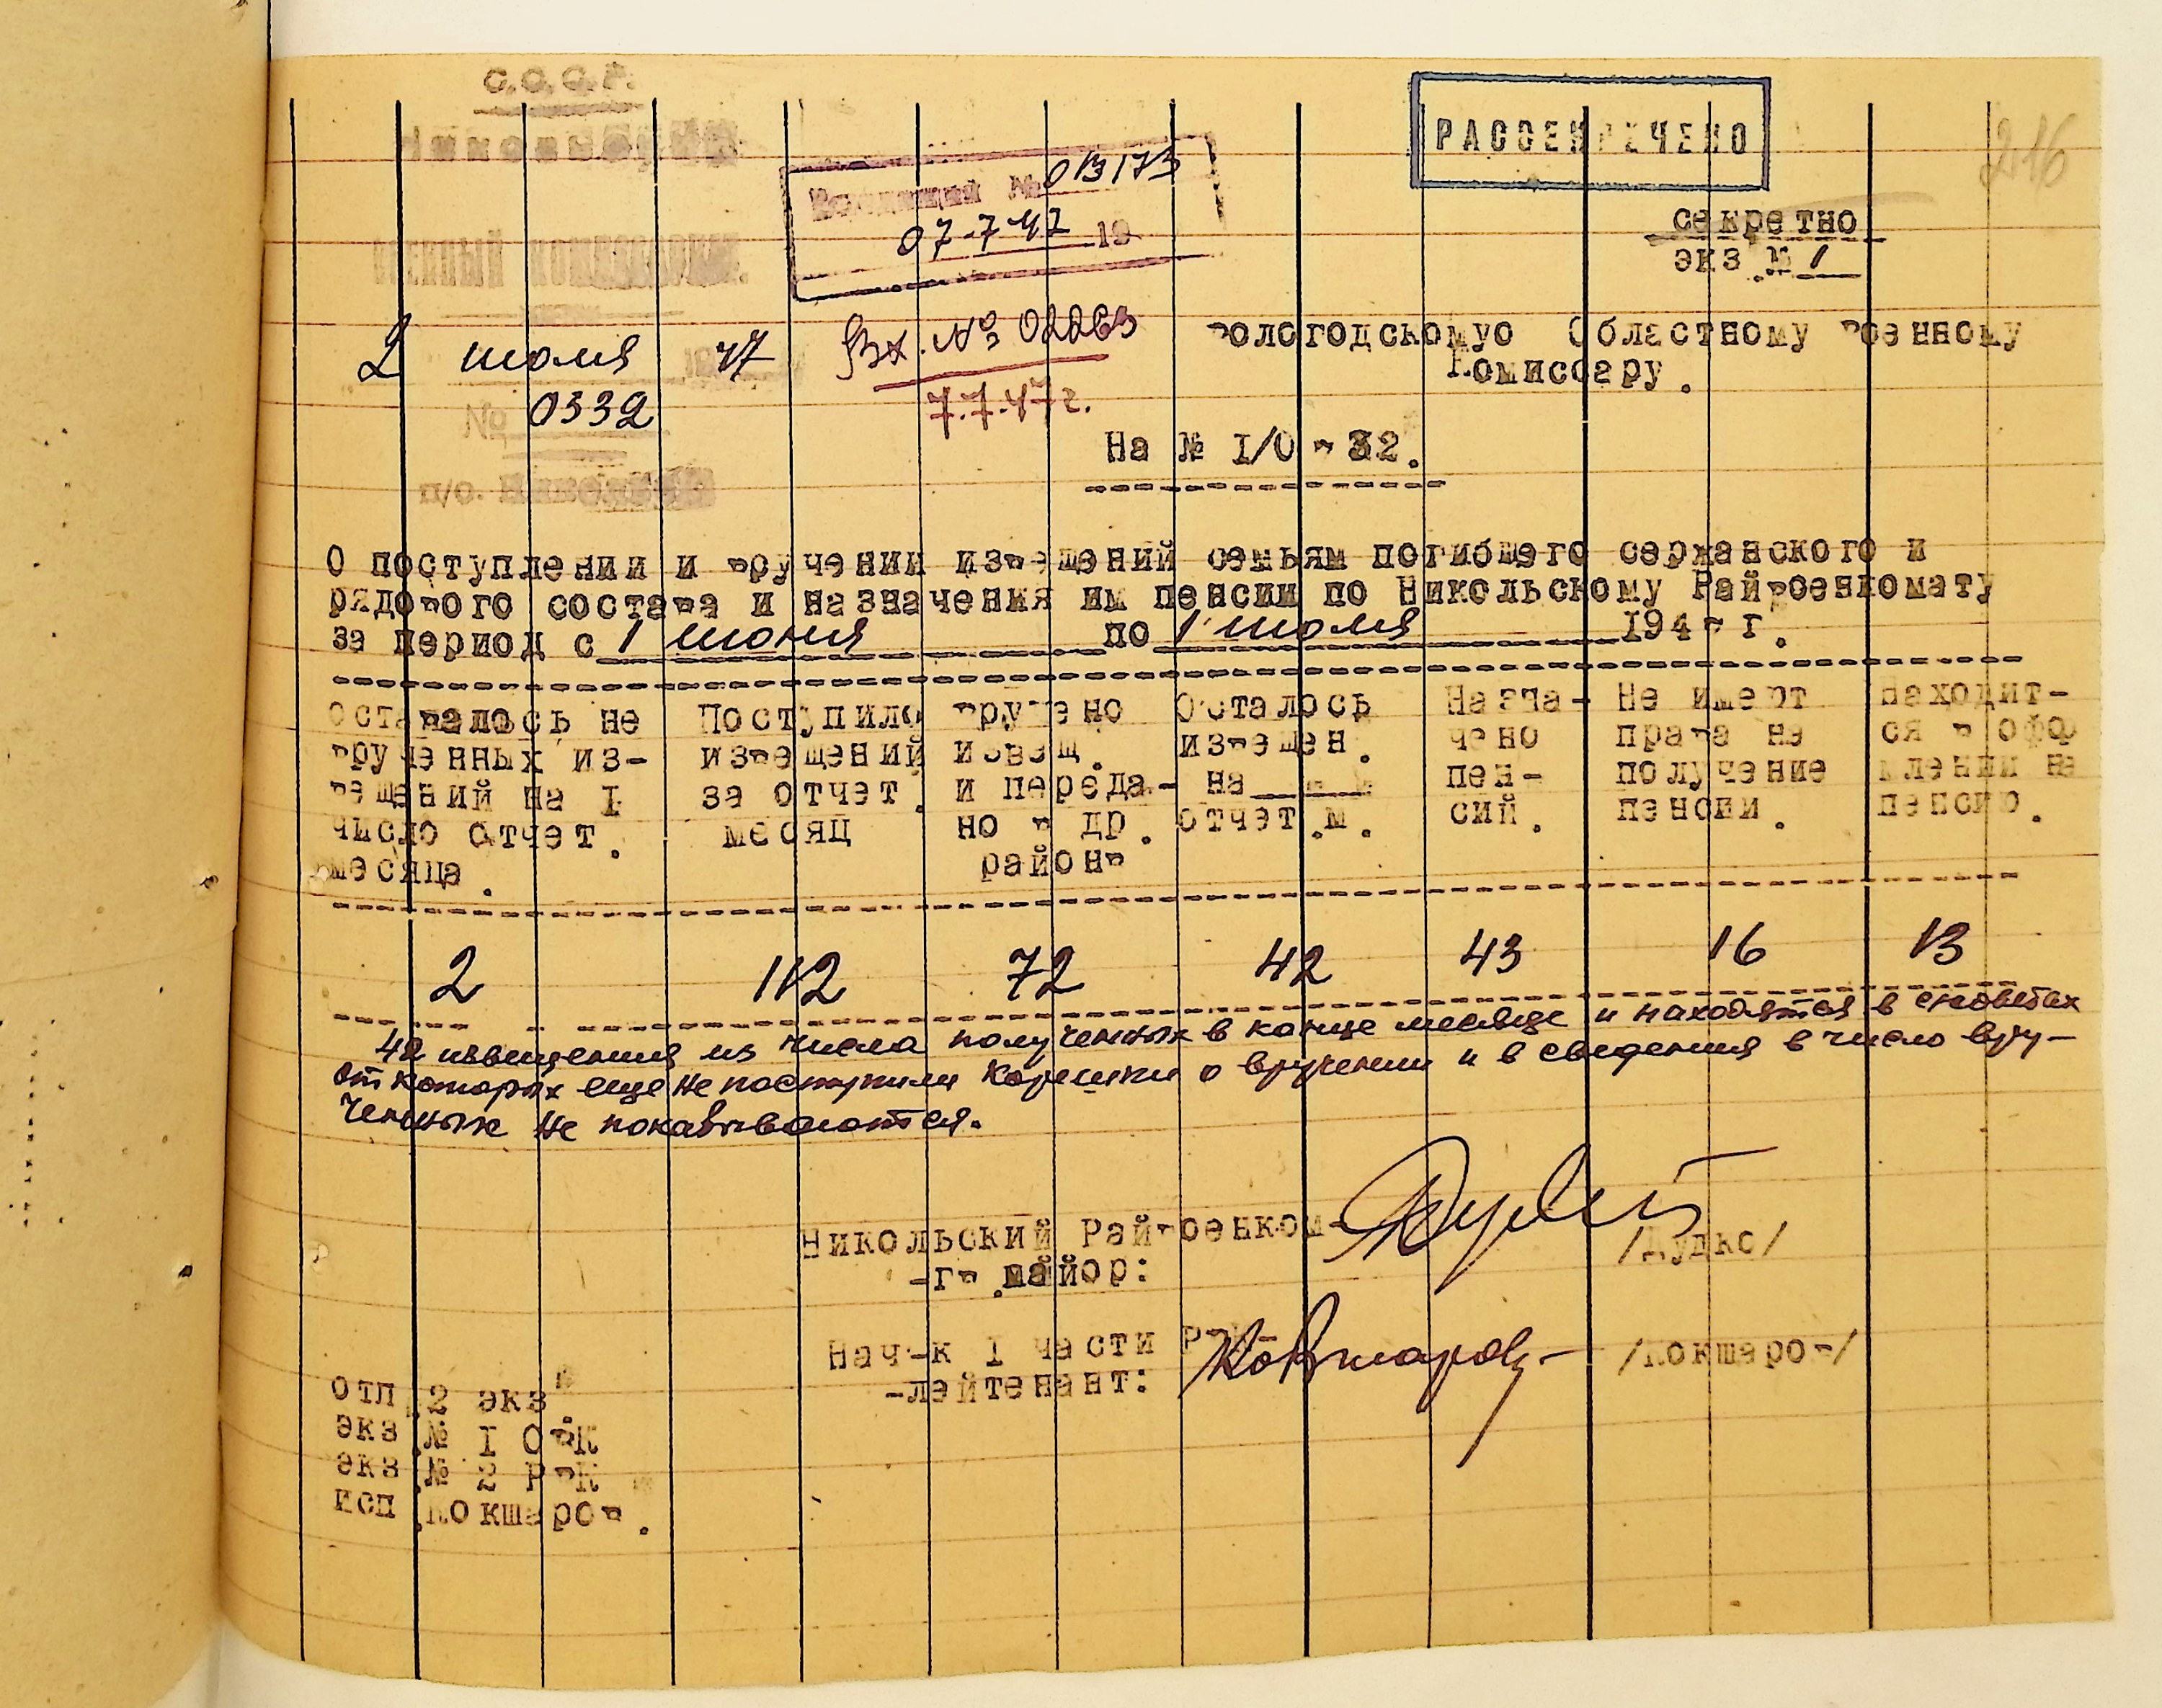 С.С.С.Р.
РАССЕКРЕЧЕНО
216
Входящий № 013173
07-7-47 19
секретно
экз.№ 1
ВОЕННЫЙ КОМИССАРИАТ
2 июля 1947
Вх. № 02263
7.7.47г.
№ 0332
п/о.
Вологодскомуо Областному Военному
Комиссару.
На № I/0 - 32.
О поступлении и вручении извещений семьям погибшего сержанского и
рядового состава и назначения им пенсии по Никольскому Райвоенкомату
за период с 1 июня по 1 июля 194 г.
Оставалось не врученных извещений на I число отчет. месяца.
Поступило извещений за отчет. месяц
Вручено извещ. и передано в др. районы
Осталось извещен. на отчет.м.
Назначено пенсий.
Не имеют права на получение пенсии.
Находится в офрмлении на пенсию.
2 112 72 42 43 16 13
42 извещения из числа полученных в конце месяце и находятся в с/советах
от которых еще не поступили корешки о вручении и в сведения в число вру-
ченных не показываются.
Никольский Райвоенком-
-гв.майор: /Дудко/
Нач-к I части
-лейтенант: /Кокшаров/
отп.2 экз.
экз.№ I ОВК
экз.№ 2 РВК
исп.Кокшаров.